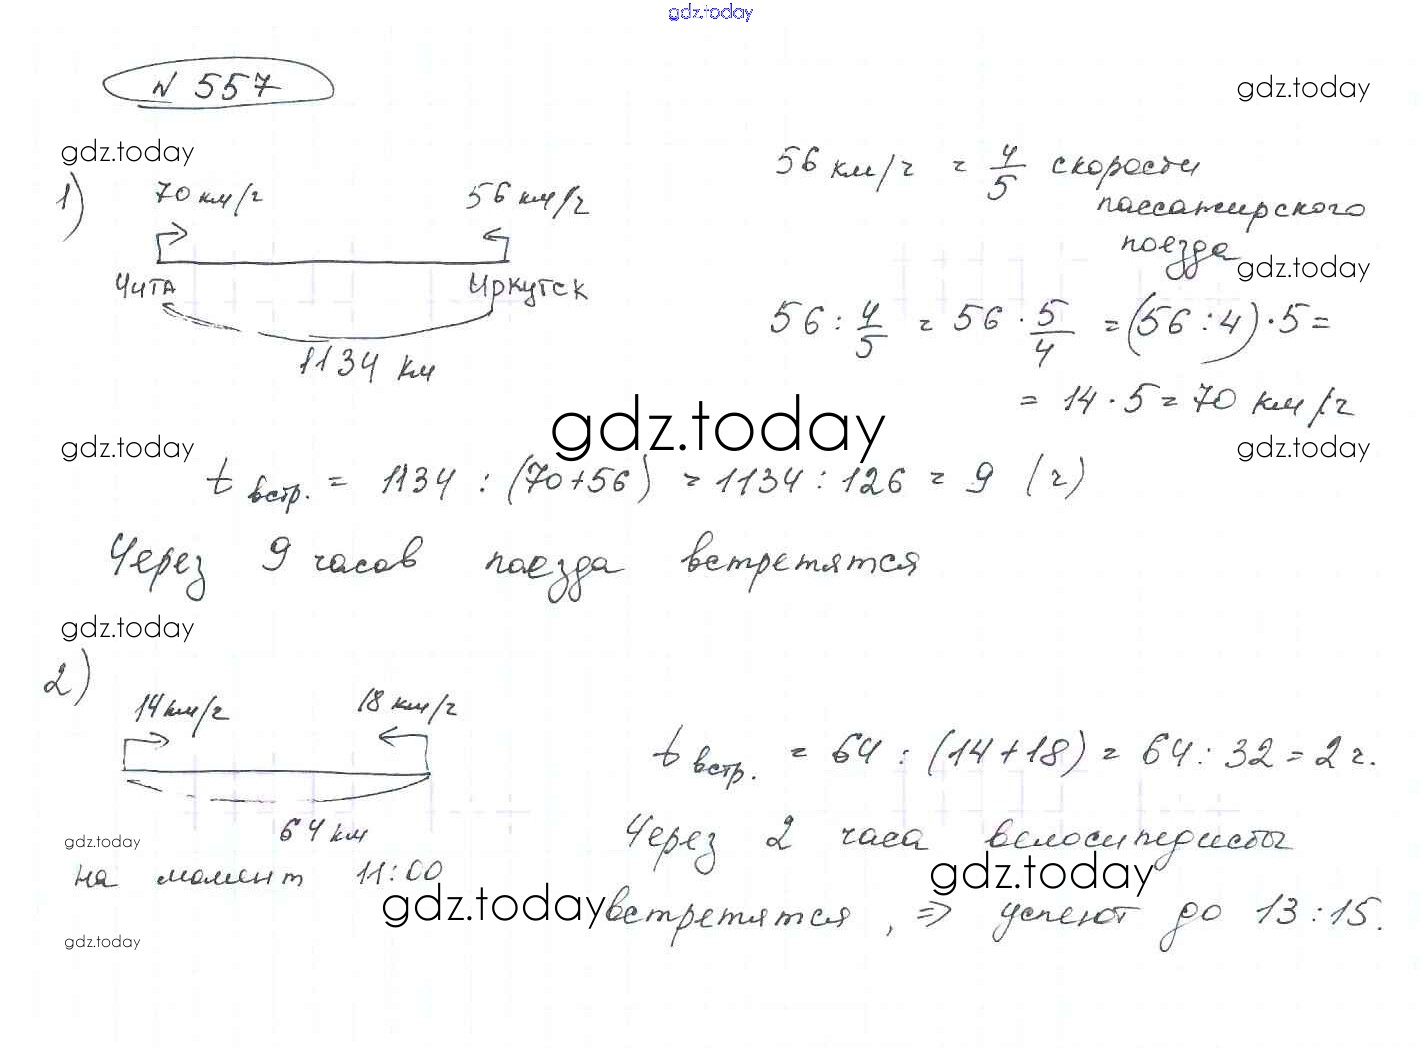 gdz.today
N 557
gdz.today
gdz.today
1)
70 км/ч 56 км/ч
Чита Иркутск
1134 км
56 км/ч = 4/5 скорости
пассажирского
поезда
gdz.today
56 : 4/5 = 56 · 5/4 = (56 : 4) · 5 =
= 14 · 5 = 70 км/ч
gdz.today
gdz.today
gdz.today
t встр. = 1134 : (70+56) = 1134 : 126 = 9 (ч)
Через 9 часов поезда встретятся
gdz.today
2)
14 км/ч 18 км/ч
64 км
на момент 11:00
t встр. = 64 : (14+18) = 64 : 32 = 2 ч.
Через 2 часа велосипедисты
встретятся, => успеют до 13:15.
gdz.today
gdz.today
gdz.today
gdz.today